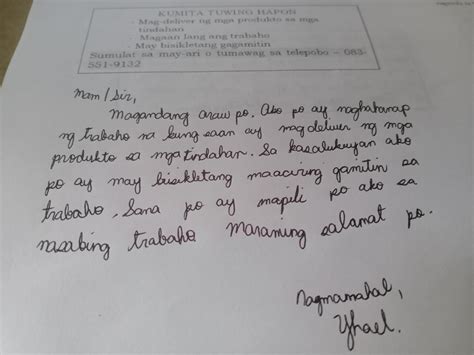 KUMITA TUWING HAPON
- Mag-deliver ng mga produkto sa mga
tindahan
- Magaan lang ang trabaho
- May bisikletang gagamitin
Sumulat sa may-ari o tumawag sa telepobo - 083-
551-9132
Mam/Sir,
Magandang araw po. Ako po ay naghahanap
ng trabaho na kung saan ay magdeliver ng mga
produkto sa mga tindahan. Sa kasalukuyan ako
po ay may bisikletang maaaring gamitin sa
trabaho. Sana po ay mapili po ako sa
nasabing trabaho. Maraming salamat po.
Nagmamahal,
Yhael.